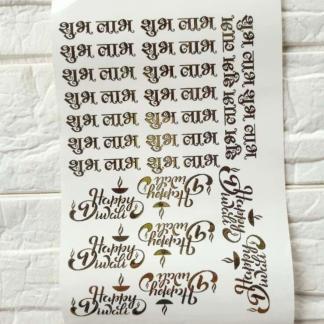 शुभ लाभ शुभ लाभ
शुभ लाभ शुभ लाभ
शुभ लाभ शुभ लाभ
शुभ लाभ शुभ लाभ
शुभ लाभ शुभ लाभ
शुभ लाभ शुभ लाभ
शुभ लाभ शुभ लाभ
शुभ लाभ शुभ लाभ
शुभ लाभ शुभ लाभ
Happy Diwali
Happy Diwali
Happy Diwali
Happy Diwali
Happy Diwali
Happy Diwali
Happy Diwali
Happy Diwali